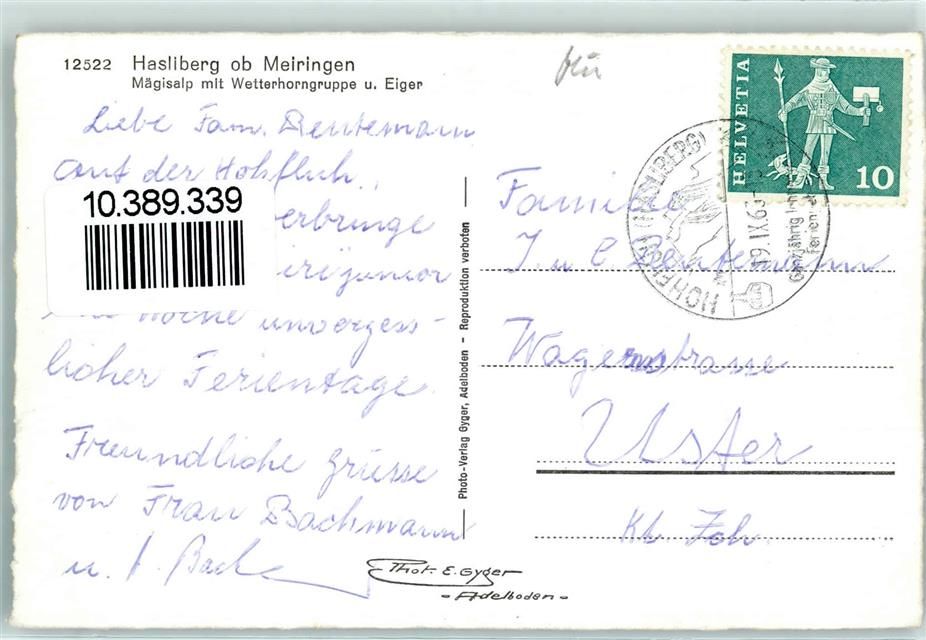 12522 Hasliberg ob Meiringen
Mägisalp mit Wetterhorngruppe u. Eiger
Liebe Fam. Bentemann
auf der Hohfluh
10.389.339
verbringe
Woche unvergess-
licher Ferientage.
Freundliche Grüsse
von Frau Bachmann
u.
Phot. E. Gyger
- Adelboden -
Photo-Verlag Gyger, Adelboden - Reproduktion verboten
HELVETIA
10
HOHFLUH (HASLIBERG)
19.IX.6
Ganzjährig
Ferien
Familie
J. u. C. Bentemann
Wagerenstrasse
Uster
Kt. Zch.